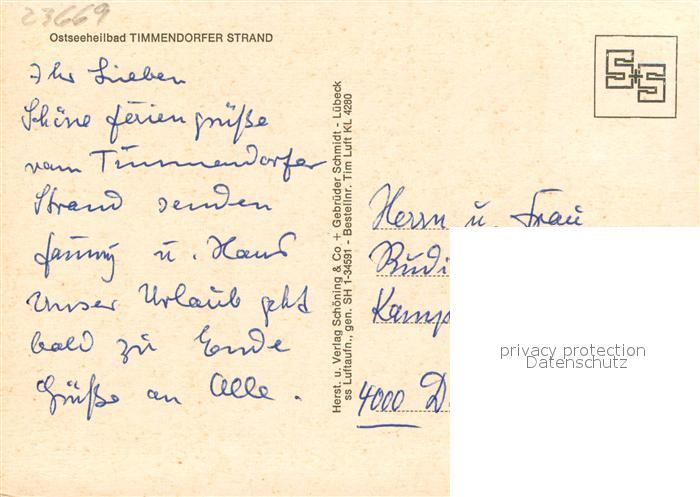 23669
Ostseeheilbad TIMMENDORFER STRAND
Ihr Lieben
Schöne Feriengrüße
vom Timmendorfer
Strand senden
Fanny u. Hans
Unser Urlaub geht
bald zu Ende
Grüße an Alle.
Herst. u. Verlag Schöning & Co + Gebrüder Schmidt - Lübeck
ss Luftaufn., gen. SH 1-34591 - Bestellnr. Tim Luft KL 4280
S+S
Herrn u. Frau
Rudi
Kamp
4000 D
privacy protection
Datenschutz